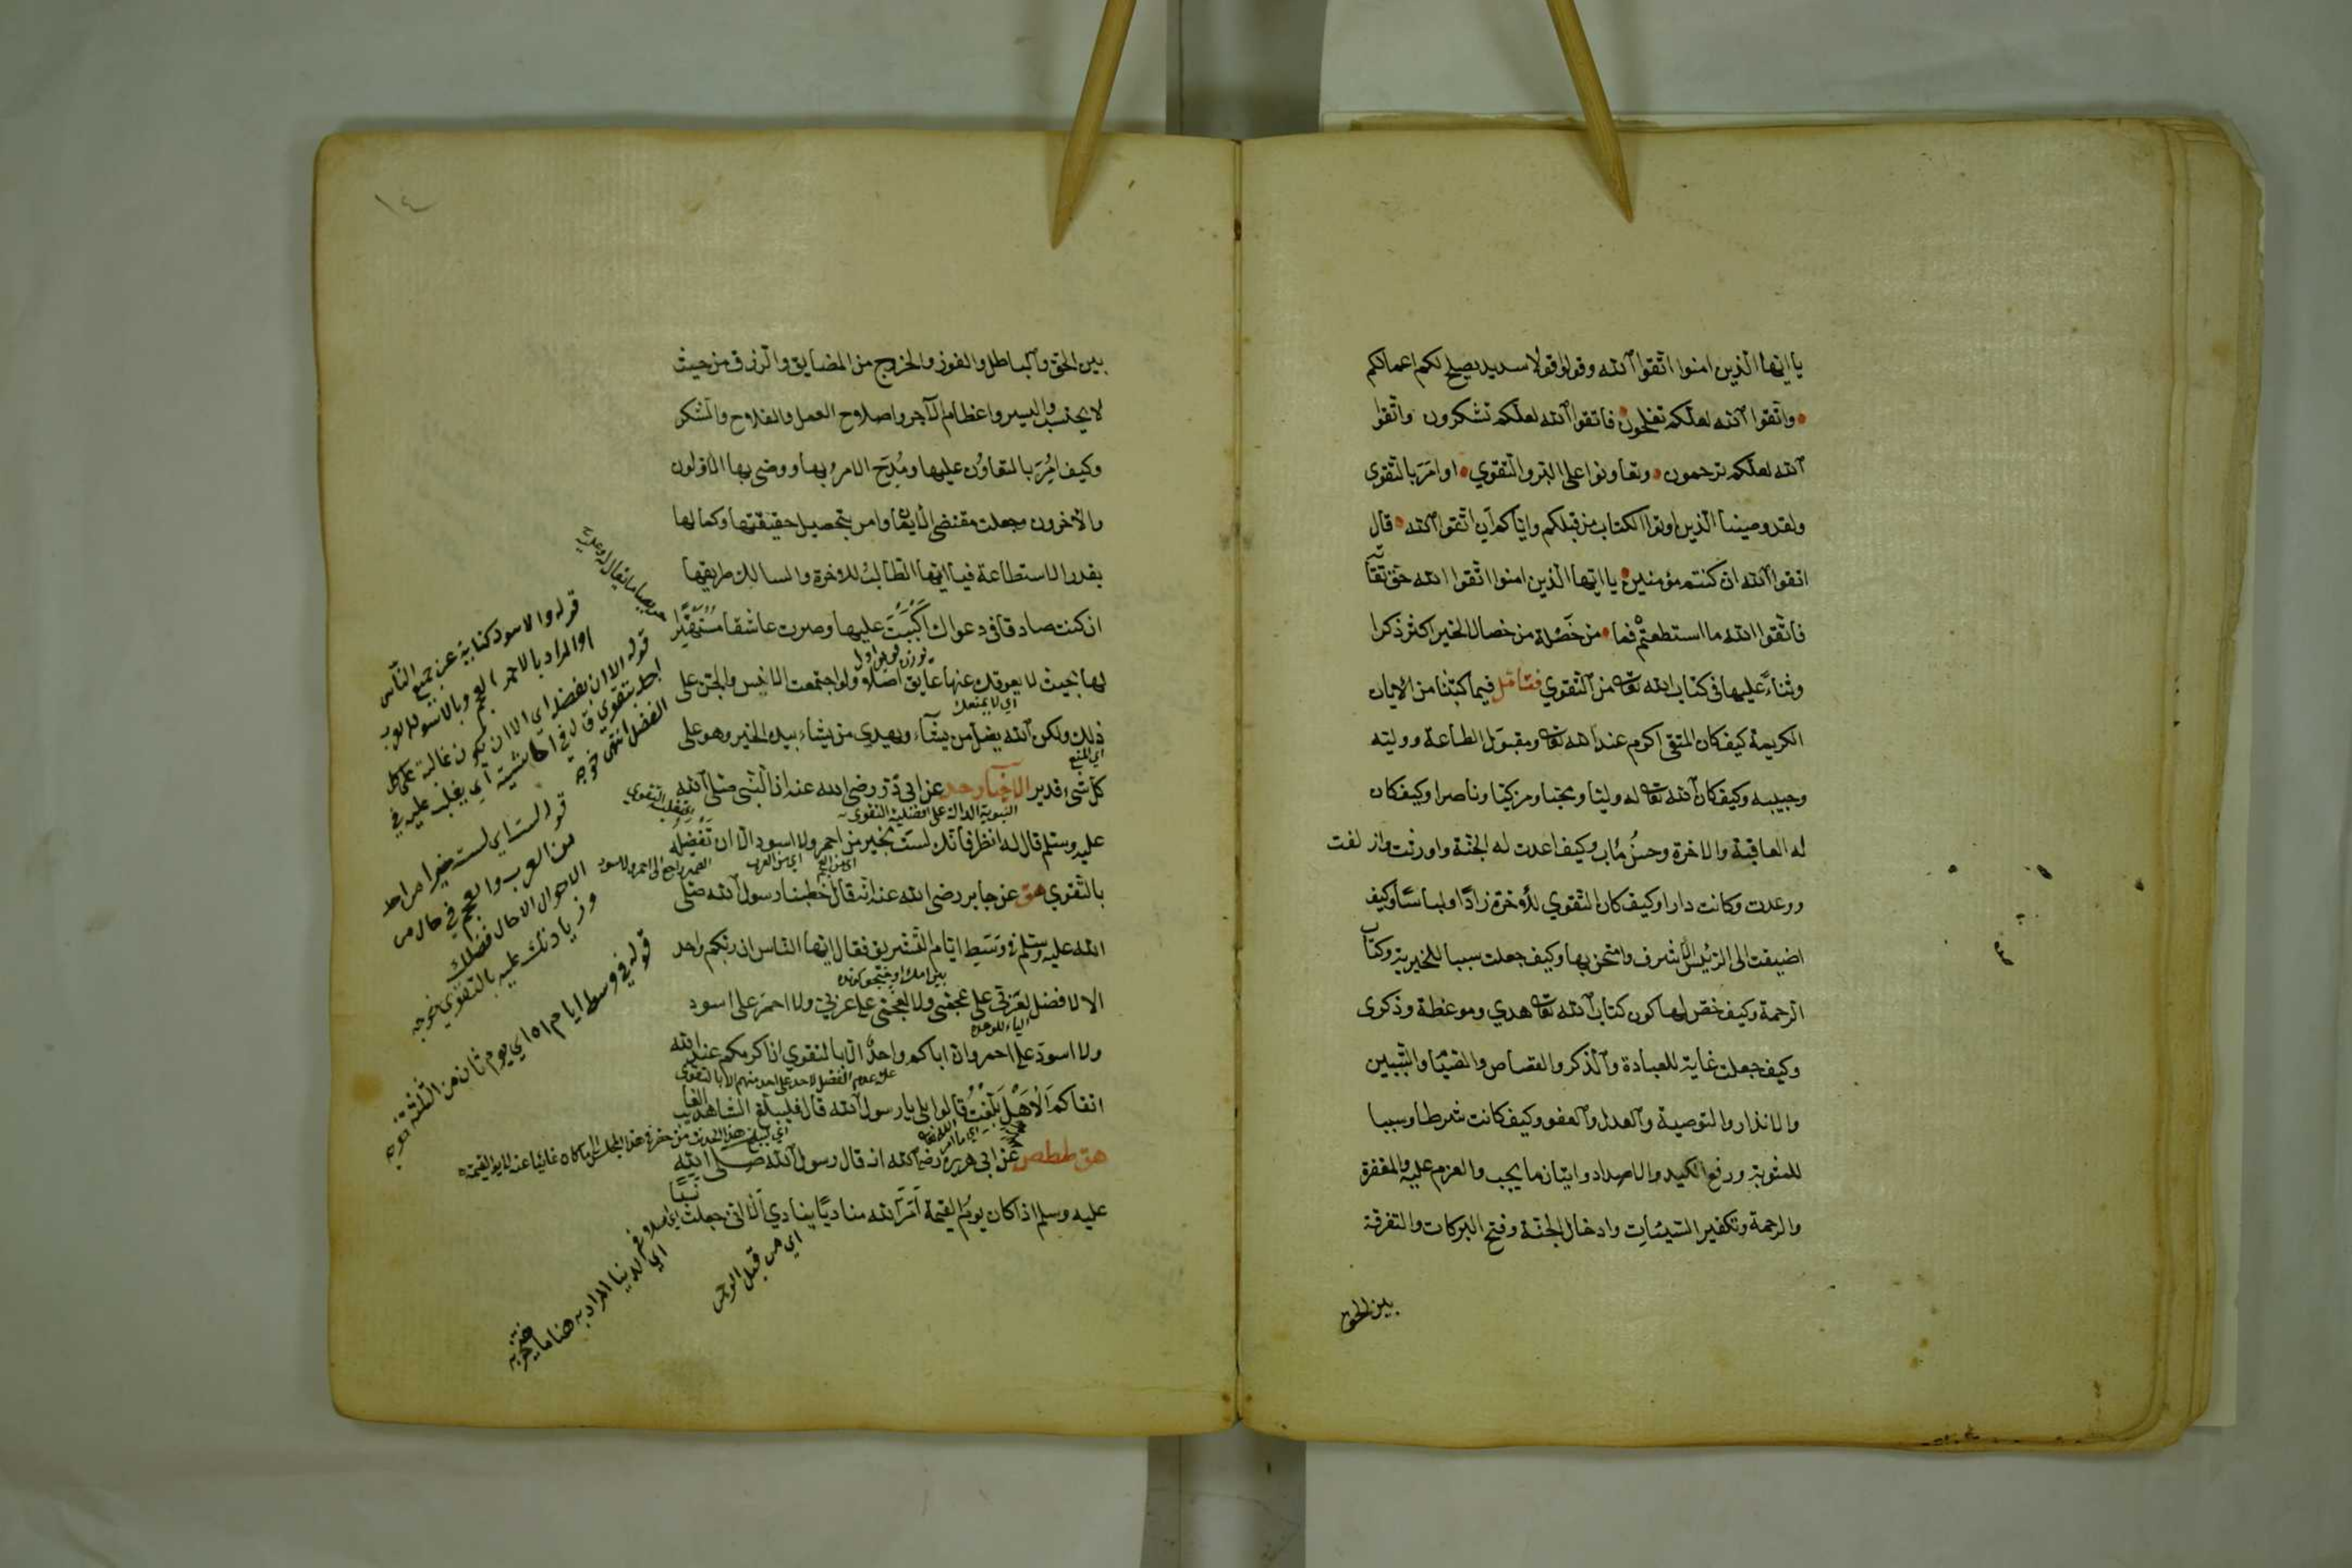 يا ايها الذين امنوا اتقوا الله وقولوا قولا سديدا يصلح لكم اعمالكم
واتقوا الله لعلكم تفلحون فاتقوا الله لعلكم تشكرون واتقوا
الله لعلكم ترحمون وتعاونوا على البر والتقوي او امر بالتقوى
ولقد وصينا الذين اوتوا الكتاب من قبلكم واياكم ان اتقوا الله قال
اتقوا الله ان كنتم مؤمنين يا ايها الذين امنوا اتقوا الله حق تقاته
فاتقوا الله ما استطعتم فما من خصلة من خصال الخير اكثر ذكرا
وثناء عليها في كتاب الله تعا من التقوي فتامل فيما كتبنا من الايات
الكريمة كيف كان المتقي اكرم عند الله تعا ومقبول الطاعة ووليه
وحبيبه وكيف كان الله تعا له وليا ومحبا ومزكيا وناصرا وكيف كان
له العاقبة والاخرة وحسن مآب وكيف اعدت له الجنة واورثت وازلفت
ووعدت وكانت دارا وكيف كان التقوي للاخرة زادا ولباسا وكيف
اضيفت الى الرئيس الاشرف وامتحن بها وكيف جعلت سببا للخيرية وكتاب
الرحمة وكيف خص لها كون كتاب الله تعا هدي وموعظة وذكرى
وكيف جعلت غاية للعبادة والذكر والقصاص والصيام والتبيين
والانذار والتوصية والعدل والعفو وكيف كانت شرطا وسببا
للمثوبة ورفع الكيد والامداد واتيان ما يجب والعزم عليه والمغفرة
والرحمة وتكفير السيئات وادخال الجنة وفتح البركات والتفرقة
بين الحق
١٤
بين الحق والباطل والفوز والخروج من المضايق والرزق من حيث
لا يحتسب واليسر واعظام الاجر واصلاح العمل والفلاح والشكر
وكيف امر بالتعاون عليها ومدح الامر بها ووصى بها الاولون
والاخرون وجعلت مقتضى الايمان وامر بتحصيل حقيقتها وكمالها
بقدر الاستطاعة فيا ايها الطالب للاخرة والسالك طريقها
ان كنت صادقا في دعواك اكببت عليها وصرت عاشقا مستهترا
لها بحيث لا يعوقك عنها عايق اصلا ولو اجتمعت الانس والجن على
اي لا يمنعك
ذلك ولكن الله يضل من يشاء ويهدي من يشاء بيده الخير وهو على
اي المنع
كل شئ قدير الاخبار حد عن ابي ذر رضى الله عنه ان النبي صلى الله
النبوية الدالة على افضلية التقوى
عليه وسلم قال له انظر فانك لست بخير من احمر ولا اسود الا ان تفضله
اي من العجم اي من العرب
الضمير راجع الى احمر ولا اسود
بالتقوي هق عن جابر رضى الله عنه انه قال خطبنا رسول الله صلى
الله عليه وسلم في وسط ايام التشريق فقال ايها الناس ان ربكم واحد
الا لا فضل لعربي على عجمي ولا لعجمي على عربي ولا احمر على اسود
ولا اسود على احمر وان اباكم واحد الا بالتقوي ان اكرمكم عند الله
علة عدم الفضل لاحد على احد منهم الا بالتقوى
اتقاكم الا هل بلغت قالوا بلى يا رسول الله قال فليبلغ الشاهد الغايب
هق طط طص عن ابي هريرة رضى الله انه قال رسول الله صلى الله
عليه وسلم اذا كان يوم القيمة امر الله مناديا ينادي الا اني جعلت نسبا
اي من قبل الرحمن
قوله والاسود كناية عن جميع الناس
او المراد بالاحمر العجم وبالاسود العرب
قوله الا ان تفضله اي الا ان تكون غالبة على كل
قوله لست اي لست خيرا من احد
من العرب والعجم في حال من
الاحوال الا حال فضلك
وزيادتك عليه بالتقوى
قوله في وسط ايام اه اي يوم ثان من الثلثة